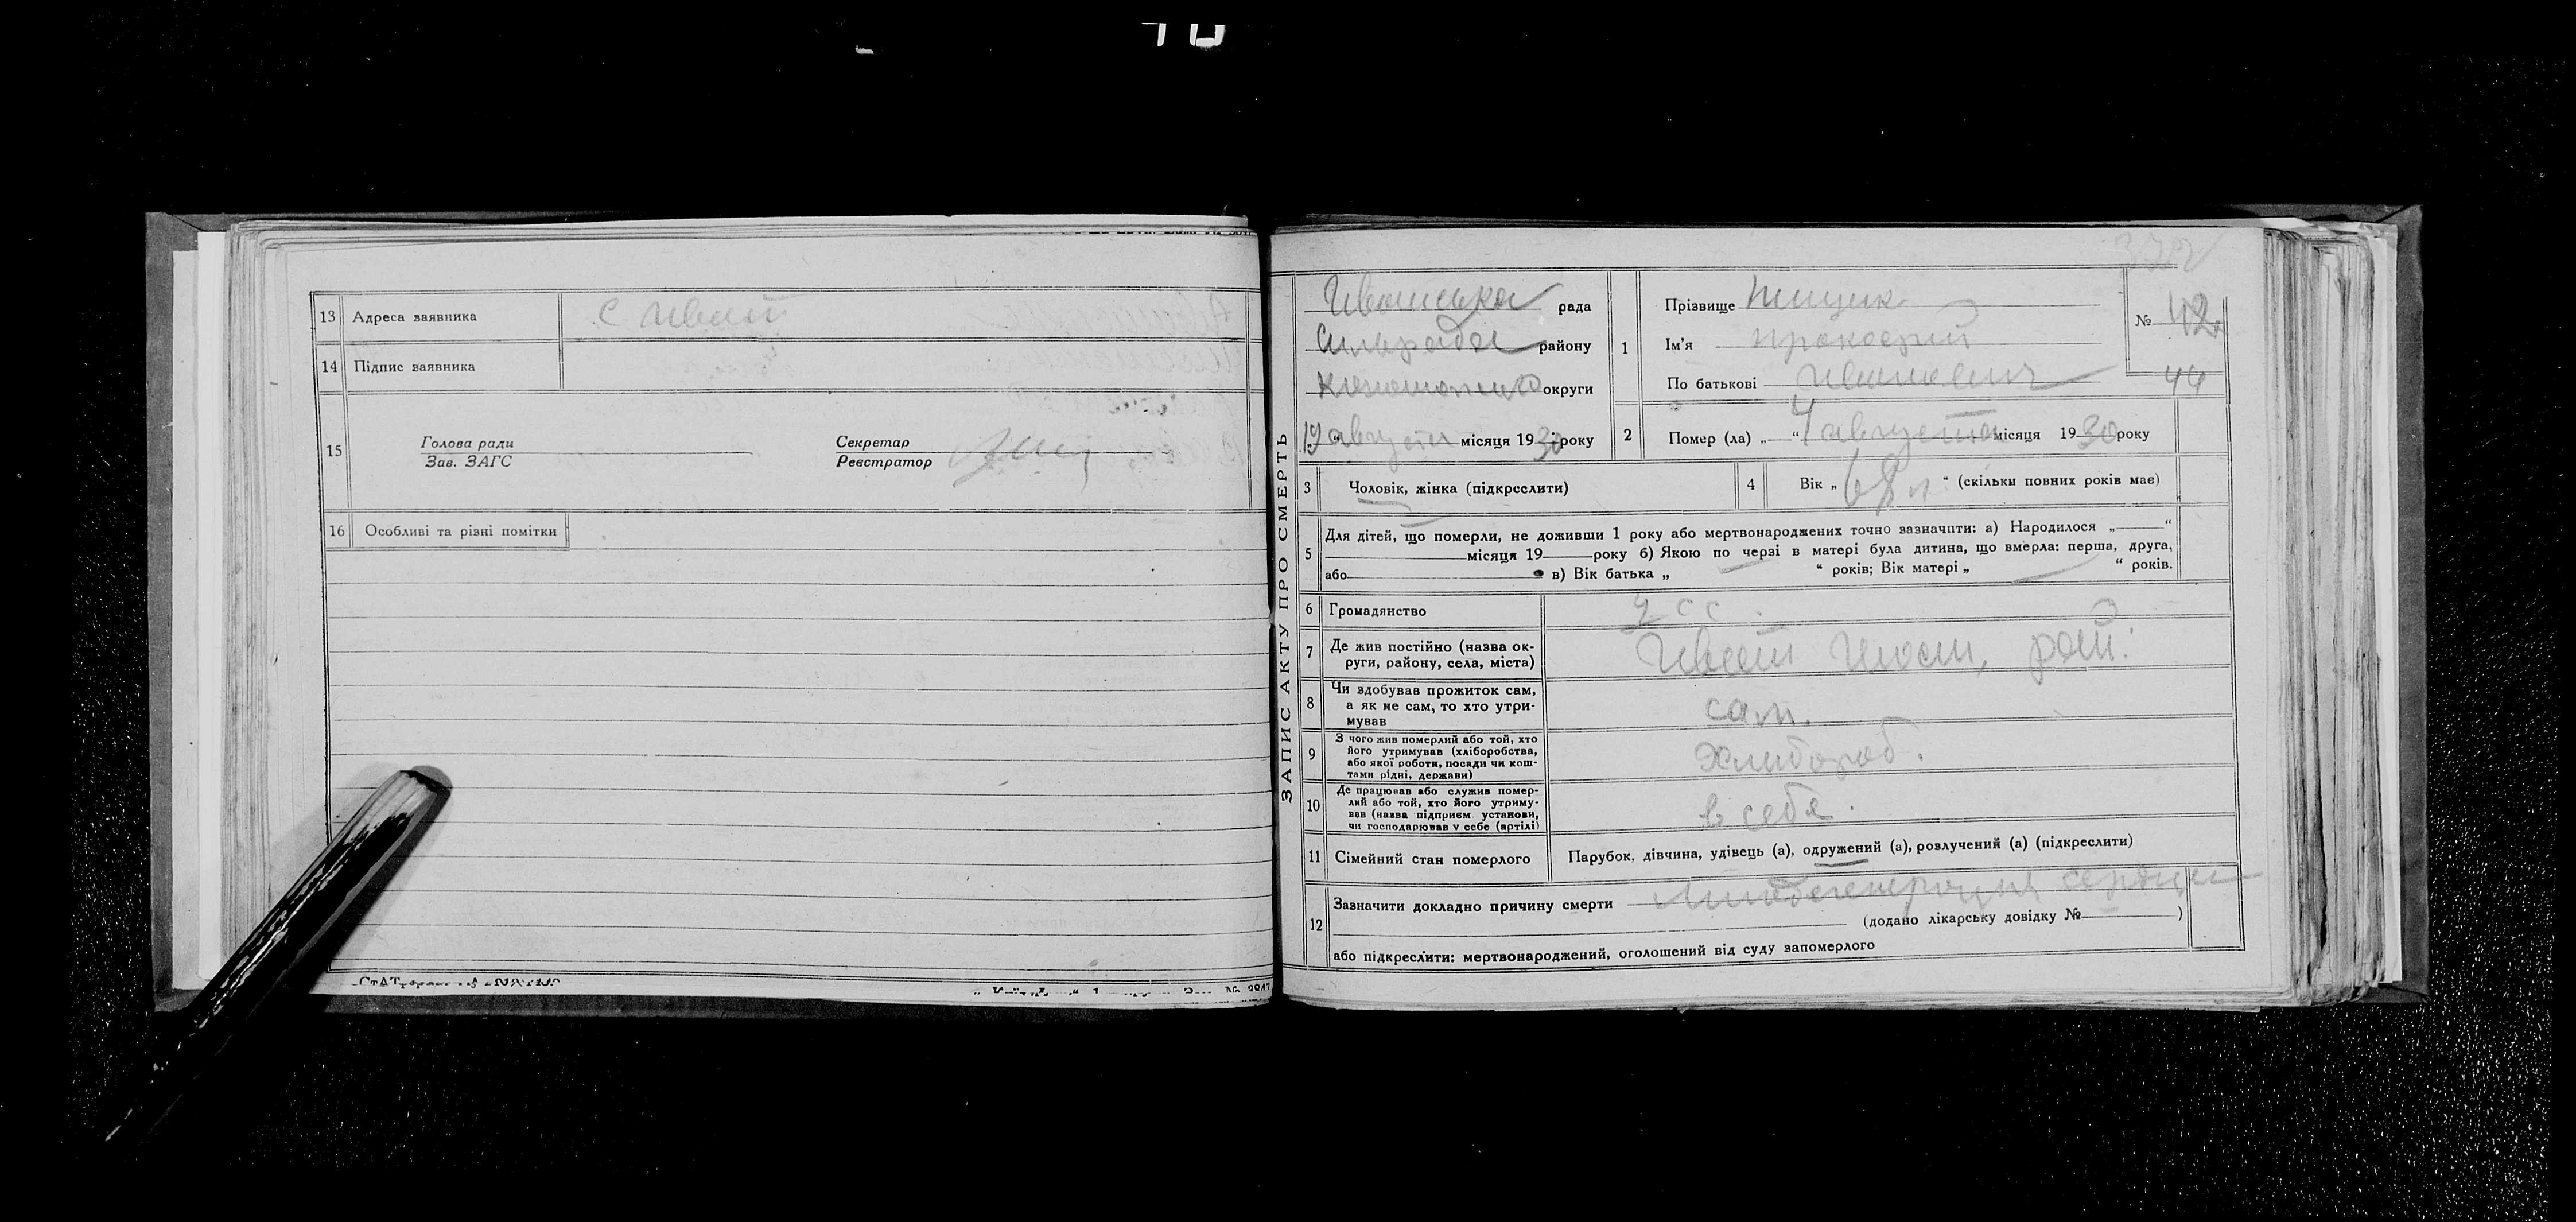 13 Адреса заявника с Иваш
14 Підпис заявника
15 Голова ради
Зав. ЗАГС
Секретар
Реєстратор
16 Особливі та різні помітки
ЗАПИС АКТУ ПРО СМЕРТЬ
Ивашська рада
Сильрада району
округи
19 августа місяця 1930 року
1 Прізвище
Ім'я Прокофий
По батькові Иванович
№ 42
44
2 Помер (ла) „ “ 4 августа місяця 1930 року
3 Чоловік, жінка (підкреслити)
4 Вік „ 68 л “ (скільки повних років має)
5 Для дітей, що померли, не доживши 1 року або мертвонароджених точно зазначити: а) Народилося „ “
місяця 19 року б) Якою по черзі в матері була дитина, що вмерла: перша, друга,
або в) Вік батька „ “ років; Вік матері „ “ років.
6 Громадянство
7 Де жив постійно (назва ок-
руги, району, села, міста) рай.
8 Чи здобував прожиток сам,
а як не сам, то хто утри-
мував сам.
9 З чого жив померлий або той, хто
його утримував (хліборобства,
або якої роботи, посади чи кош-
тами рідні, держави) Хлибороб.
10 Де працював або служив помер-
лий або той, хто його утриму-
вав (назва підприєм установи,
чи господарював у себе (артілі) в себя.
11 Сімейний стан померлого Парубок, дівчина, удівець (а), одружений (а), розлучений (а) (підкреслити)
12 Зазначити докладно причину смерти сердца
(додано лікарську довідку № )
або підкреслити: мертвонароджений, оголошений від суду запомерлого